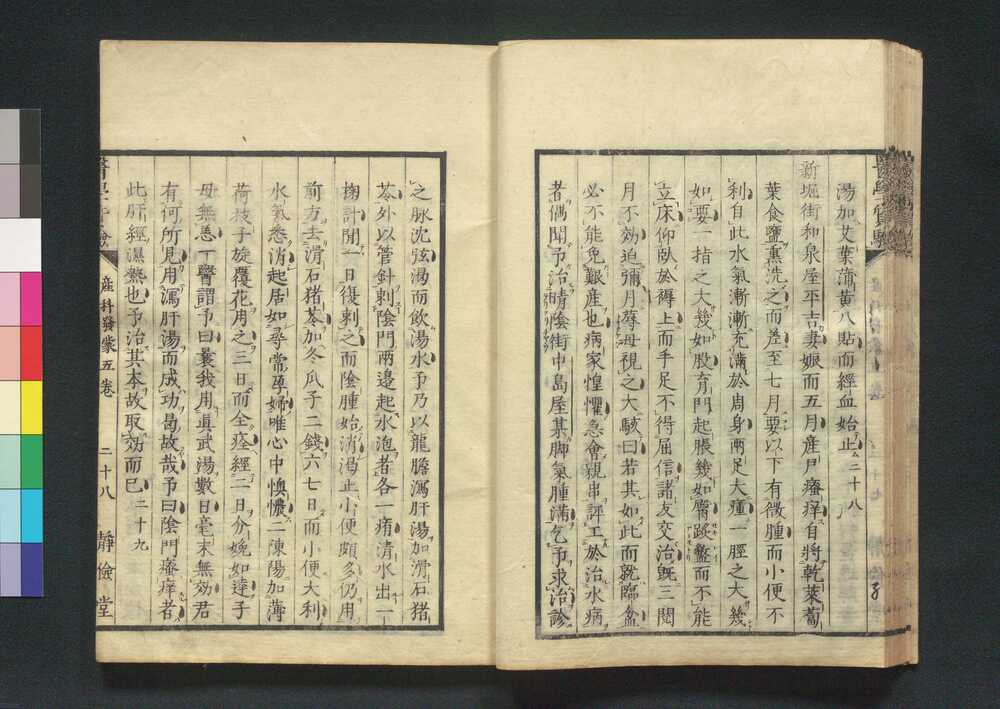 湯加艾葉蒲黄八貼而經血始止二十八
新堀街和泉屋平吉妻娠而五月産戸癢痒自將乾萊菔
葉食鹽熏洗之而差至七月要以下有微腫而小便不
利自此水氣漸漸充滿於周身兩足大瘇一脛之大幾
如要一指之大幾如股育門起脹幾如臀踆盭而不能
立床仰臥於褥上而手足不得屈信諸友交治既三閱
月不効迫彌月蓐母視之大駭曰若其如此而就臨盆
必不能免艱産也病家惶懼急會親串評工於治水病
者偶聞予治晴陰街中島屋某脚氣腫滿乞予求治診
之脉沈弦渇而飲湯水予乃以龍膽瀉肝湯加滑石猪
苓外以管針刺陰門兩邊起水泡者各一痏清水出一
掬計閒一日復刺之而陰腫始消渇止小便頗多仍用
前方去滑石猪苓加冬瓜子二錢六七日而小便大利
水氣悉消起居如尋常孕婦唯心中懊憹二陳陽加薄
荷枝子旋覆花用之三日而全痊經二日分娩如達子
母無恙一醫謂予曰曩我用眞武湯數日毫末無効君
有何所見用瀉肝湯而成功曷故哉予曰陰門癢痒者
此肝經濕熱也予治其本故取効而已二十九
醫學實驗
産科發蒙五卷
二十八
靜儉堂